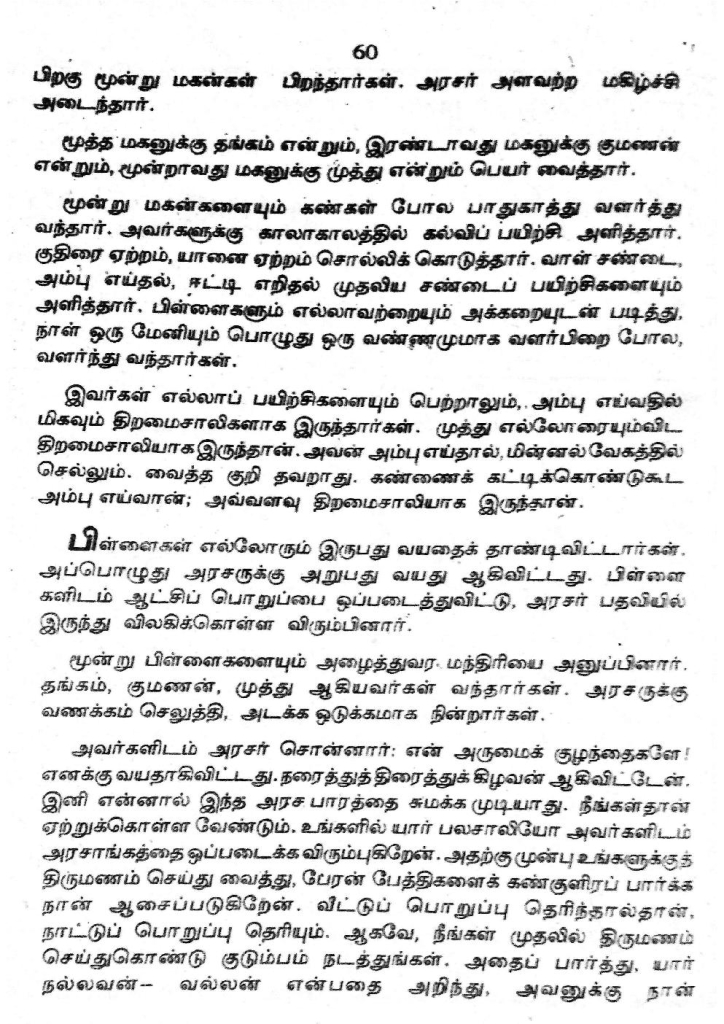 60
பிறகு மூன்று மகன்கள் பிறந்தார்கள். அரசர் அளவற்ற மகிழ்ச்சி
அடைந்தார்.
மூத்த மகனுக்கு தங்கம் என்றும், இரண்டாவது மகனுக்கு குமணன்
என்றும், மூன்றாவது மகனுக்கு முத்து என்றும் பெயர் வைத்தார்.
மூன்று மகன்களையும் கண்கள் போல பாதுகாத்து வளர்த்து
வந்தார். அவர்களுக்கு காலாகாலத்தில் கல்விப் பயிற்சி அளித்தார்.
குதிரை ஏற்றம், யானை ஏற்றம் சொல்லிக் கொடுத்தார். வாள் சண்டை,
அம்பு எய்தல், ஈட்டி எறிதல் முதலிய சண்டைப் பயிற்சிகளையும்
அளித்தார். பிள்ளைகளும் எல்லாவற்றையும் அக்கறையுடன் படித்து,
நாள் ஒரு மேனியும் பொழுது ஒரு வண்ணமுமாக வளர்பிறை போல,
வளர்ந்து வந்தார்கள்.
இவர்கள் எல்லாப் பயிற்சிகளையும் பெற்றாலும், அம்பு எய்வதில்
மிகவும் திறமைசாலிகளாக இருந்தார்கள். முத்து எல்லோரையும்விட
திறமைசாலியாக இருந்தான். அவன் அம்பு எய்தால், மின்னல் வேகத்தில்
செல்லும். வைத்த குறி தவறாது. கண்ணைக் கட்டிக்கொண்டுகூட
அம்பு எய்வான்; அவ்வளவு திறமைசாலியாக இருந்தான்.
பிள்ளைகள் எல்லோரும் இருபது வயதைக் தாண்டிவிட்டார்கள்.
அப்பொழுது அரசருக்கு அறுபது வயது ஆகிவிட்டது. பிள்ளை
களிடம் ஆட்சிப் பொறுப்பை ஒப்படைத்துவிட்டு, அரசர் பதவியில்
இருந்து விலகிக்கொள்ள விரும்பினார்.
மூன்று பிள்ளைகளையும் அழைத்துவர மந்திரியை அனுப்பினார்.
தங்கம், குமணன், முத்து ஆகியவர்கள் வந்தார்கள். அரசருக்கு
வணக்கம் செலுத்தி, அடக்க ஒடுக்கமாக நின்றார்கள்.
அவர்களிடம் அரசர் சொன்னார்: என் அருமைக் குழந்தைகளே!
எனக்கு வயதாகிவிட்டது. நரைத்துத்திரைத்துக் கிழவன் ஆகிவிட்டேன்.
இனி என்னால் இந்த அரச பாரத்தை சுமக்க முடியாது. நீங்கள்தான்
ஏற்றுக்கொள்ள வேண்டும். உங்களில் யார் பலசாலியோ அவர்களிடம்
அரசாங்கத்தை ஒப்படைக்க விரும்புகிறேன். அதற்கு முன்பு உங்களுக்குத்
திருமணம் செய்து வைத்து, பேரன் பேத்திகளைக் கண்குளிரப் பார்க்க
நான் ஆசைப்படுகிறேன். வீட்டுப் பொறுப்பு தெரிந்தால்தான்,
நாட்டுப் பொறுப்பு தெரியும். ஆகவே, நீங்கள் முதலில் திருமணம்
செய்துகொண்டு குடும்பம் நடத்துங்கள். அதைப் பார்த்து, யார்
நல்லவன்-- வல்லன் என்பதை அறிந்து, அவனுக்கு நான்